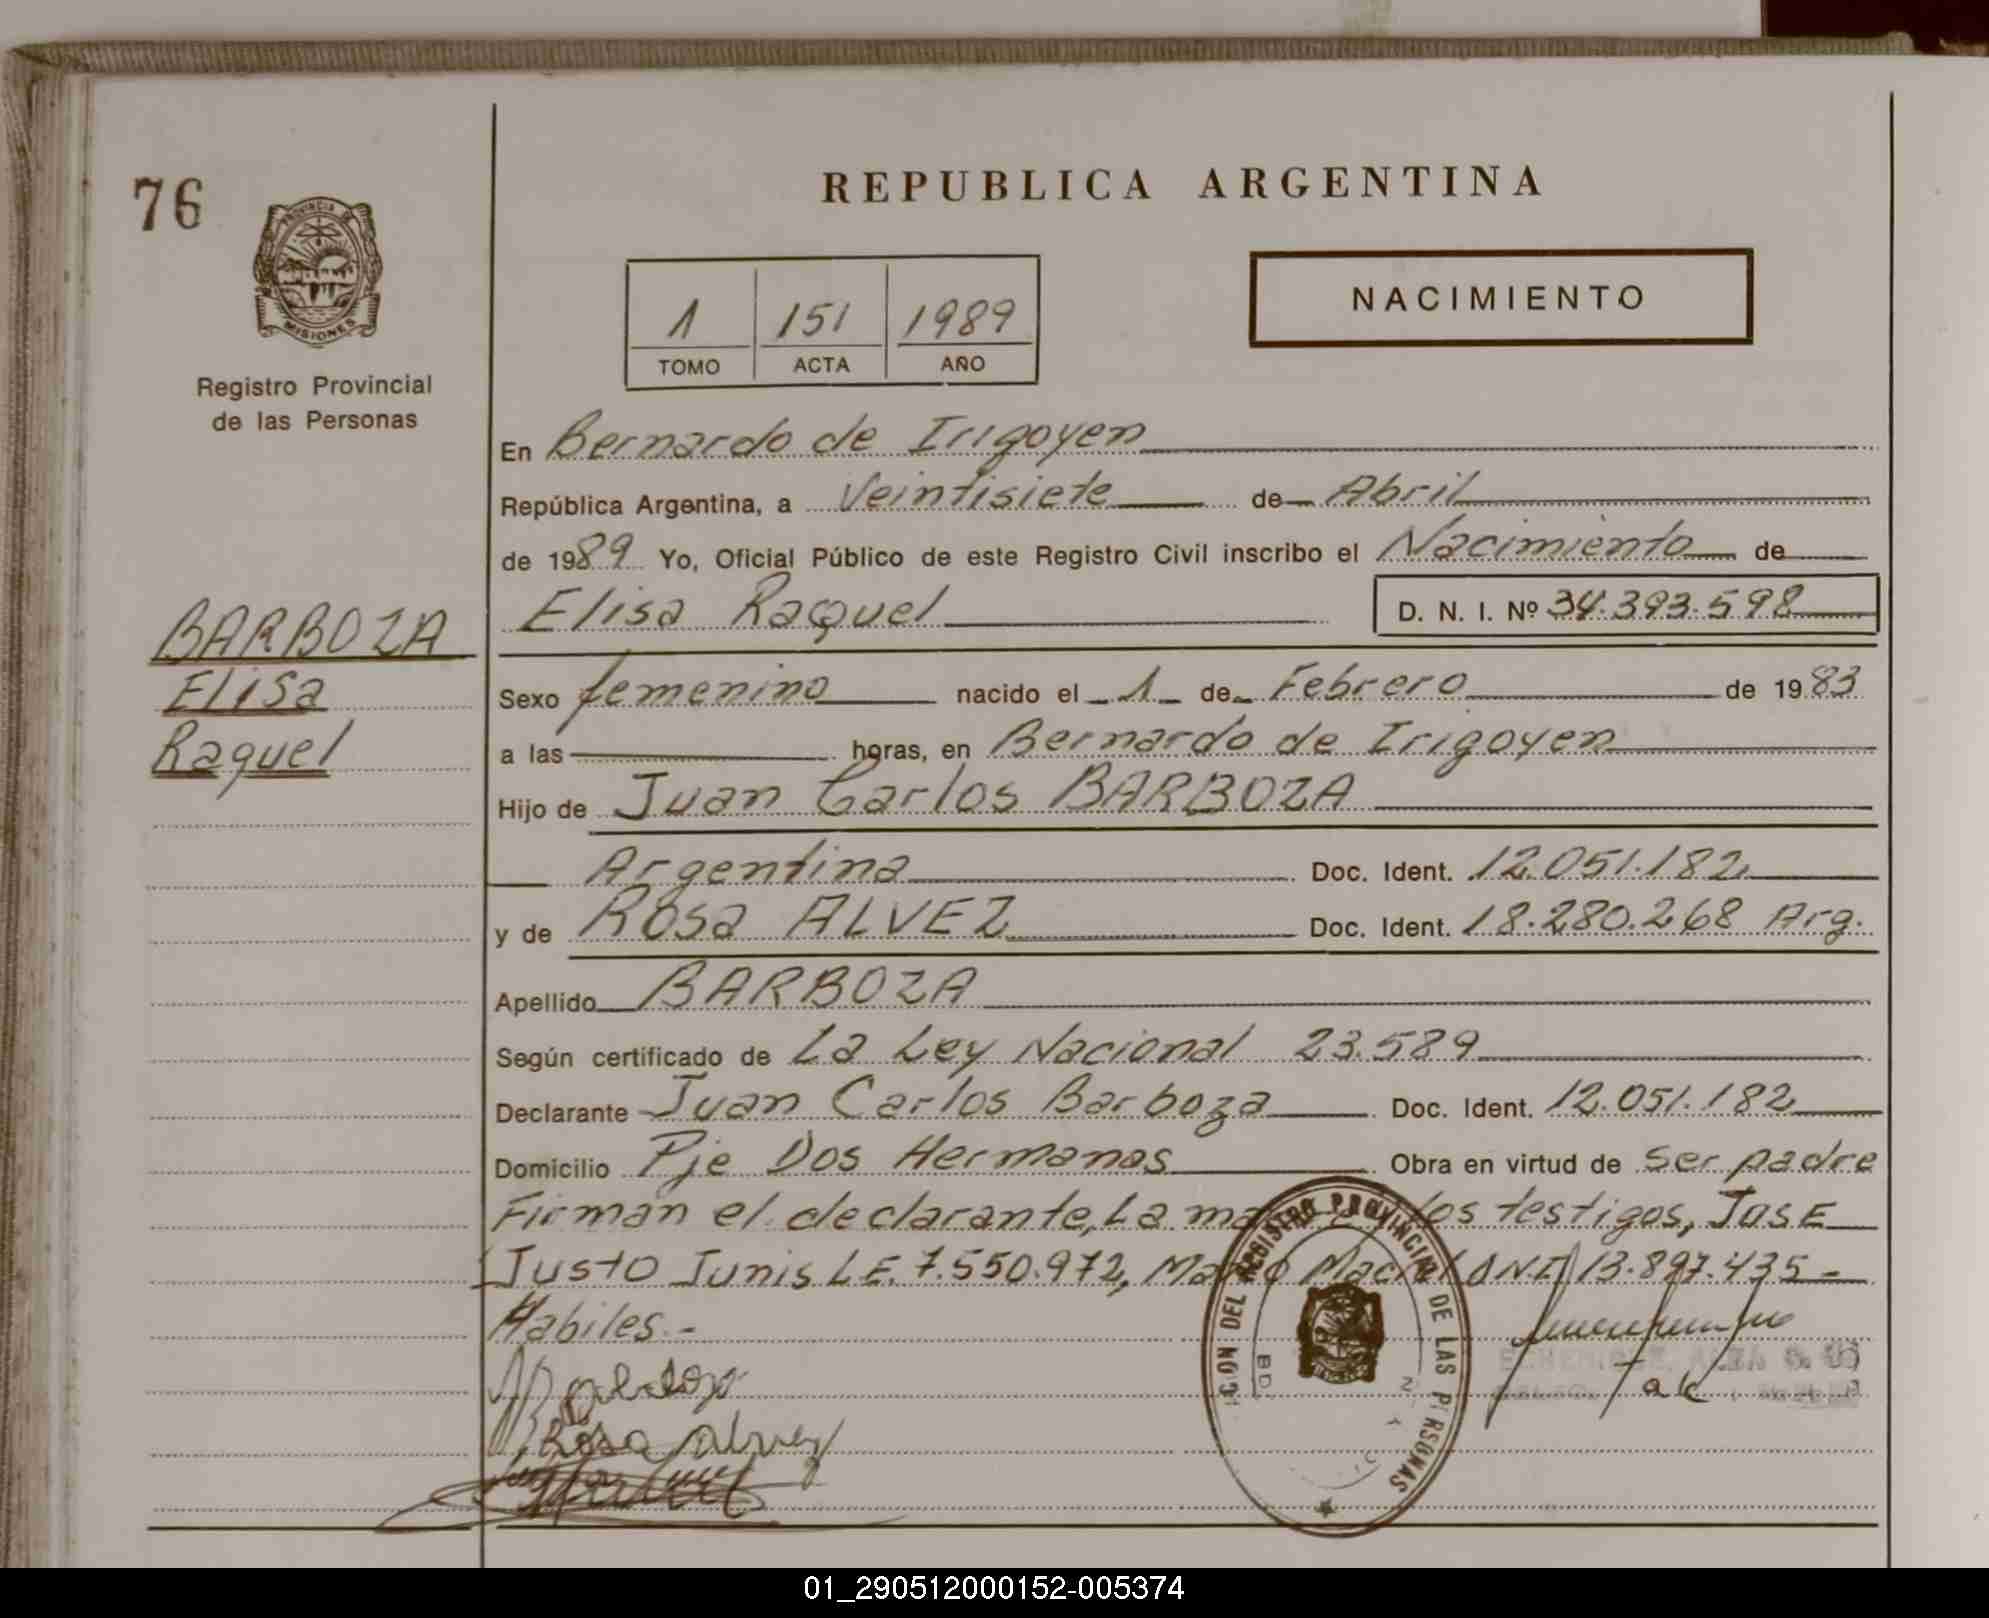 REPUBLICA ARGENTINA
76
PROVINCIA DE
MISIONES
Registro Provincial
de las Personas
NACIMIENTO
1 151 1989
TOMO ACTA AÑO
En Bernardo de Irigoyen
República Argentina, a Veintisiete de Abril
de 1989 Yo, Oficial Público de este Registro Civil inscribo el Nacimiento de
Elisa Raquel D. N. I. Nº 34.393.598
BARBOZA
Elisa
Raquel
Sexo femenino nacido el 1 de Febrero de 1983
a las horas, en Bernardo de Irigoyen
Hijo de Juan Carlos BARBOZA
Argentina Doc. Ident. 12.051.182
y de Rosa ALVEZ Doc. Ident. 18.280.268 Arg.
Apellido BARBOZA
Según certificado de La Ley Nacional 23.589
Declarante Juan Carlos Barboza Doc. Ident. 12.051.182
Domicilio Pje Dos Hermanas Obra en virtud de ser padre
Firman el declarante, La los testigos, JosE
Justo Junis LE. 7.550.972, DNI 13.897.435 -
Habiles.-
DEL REGISTRO PROVINCIAL DE LAS PERSONAS
Rosa Alvez
01_290512000152-005374